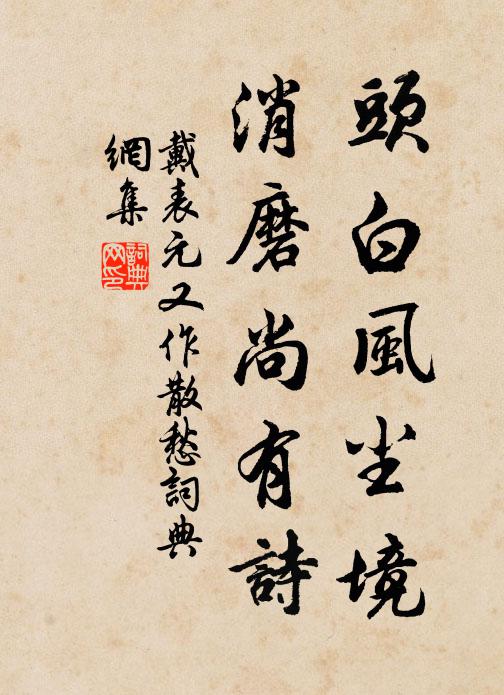 頭白風尘境
消磨尚有詩
戴表元又作散愁詞典
網集
詞典网印